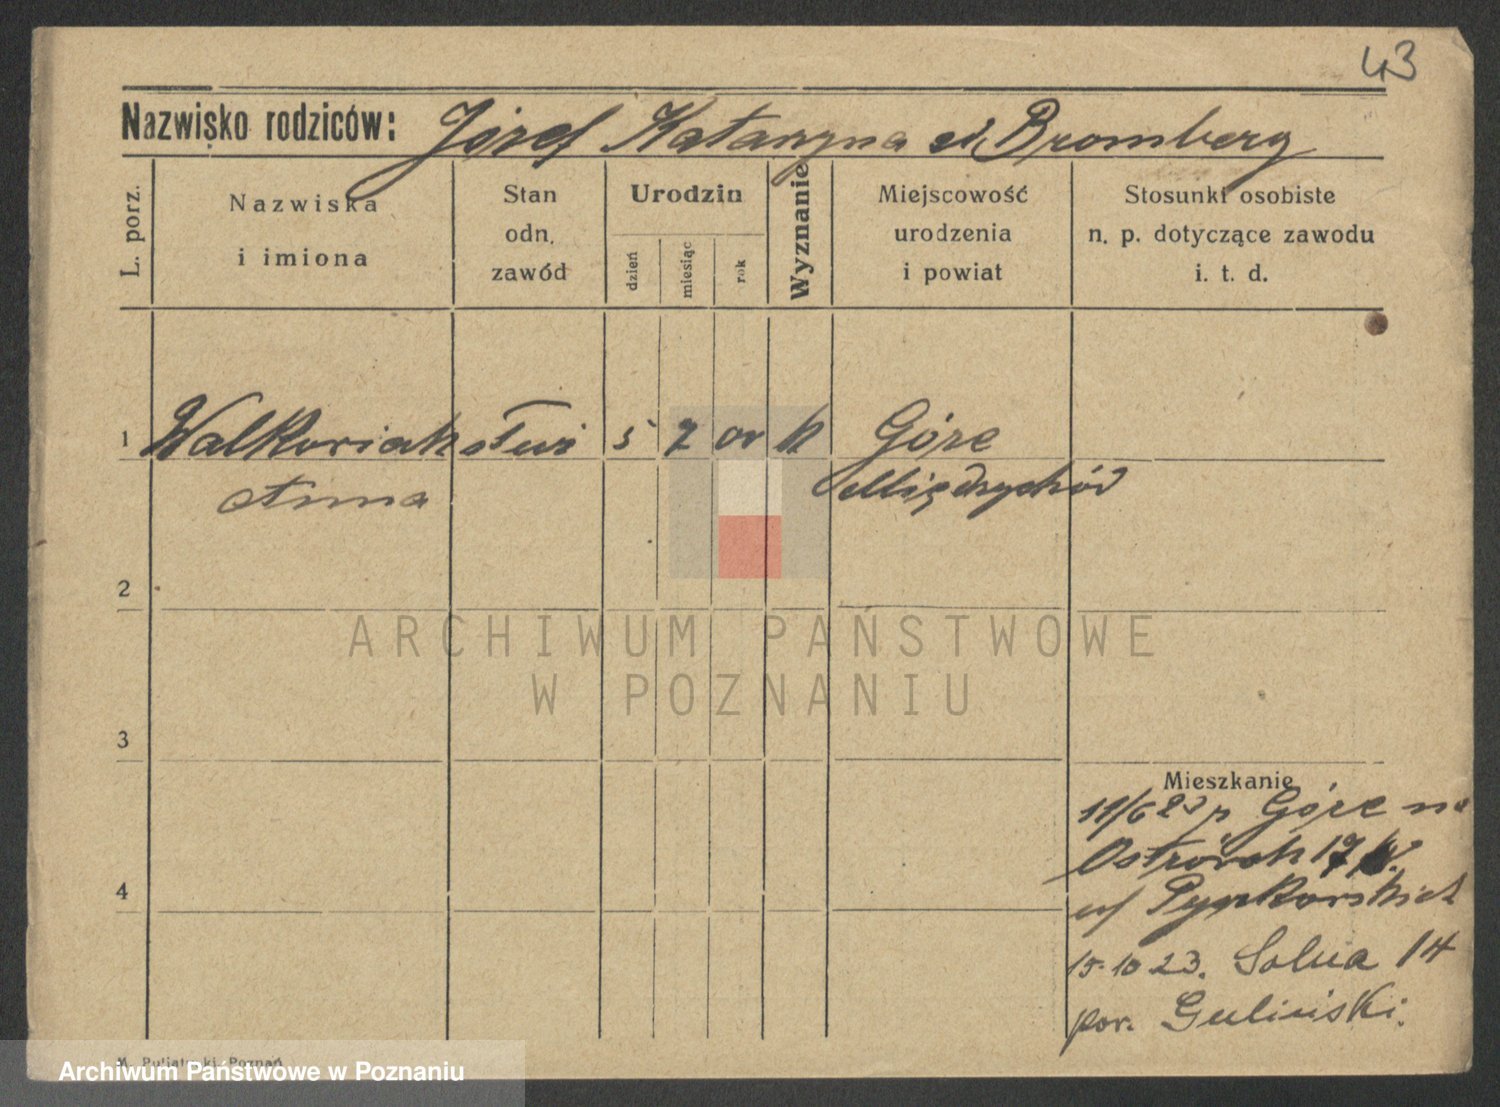 43
Nazwisko rodziców: Józef Katarzyna Bromberg
L. porz.
Nazwiska
i imiona
Stan
odn.
zawód
Urodzin
dzień
miesiąc
rok
Wyznanie
Miejscowość
urodzenia
i powiat
Stosunki osobiste
n. p. dotyczące zawodu
i. t. d.
1 Walkowiak 5 7 k Góre
Anna Międzychód
2
3
4
ARCHIWUM PAŃSTWOWE
W POZNANIU
Mieszkanie
11/6 23 p Góre na
Ostrówek 17
15.10.23. Solna 14
por. Guliński.
Archiwum Państwowe w Poznaniu